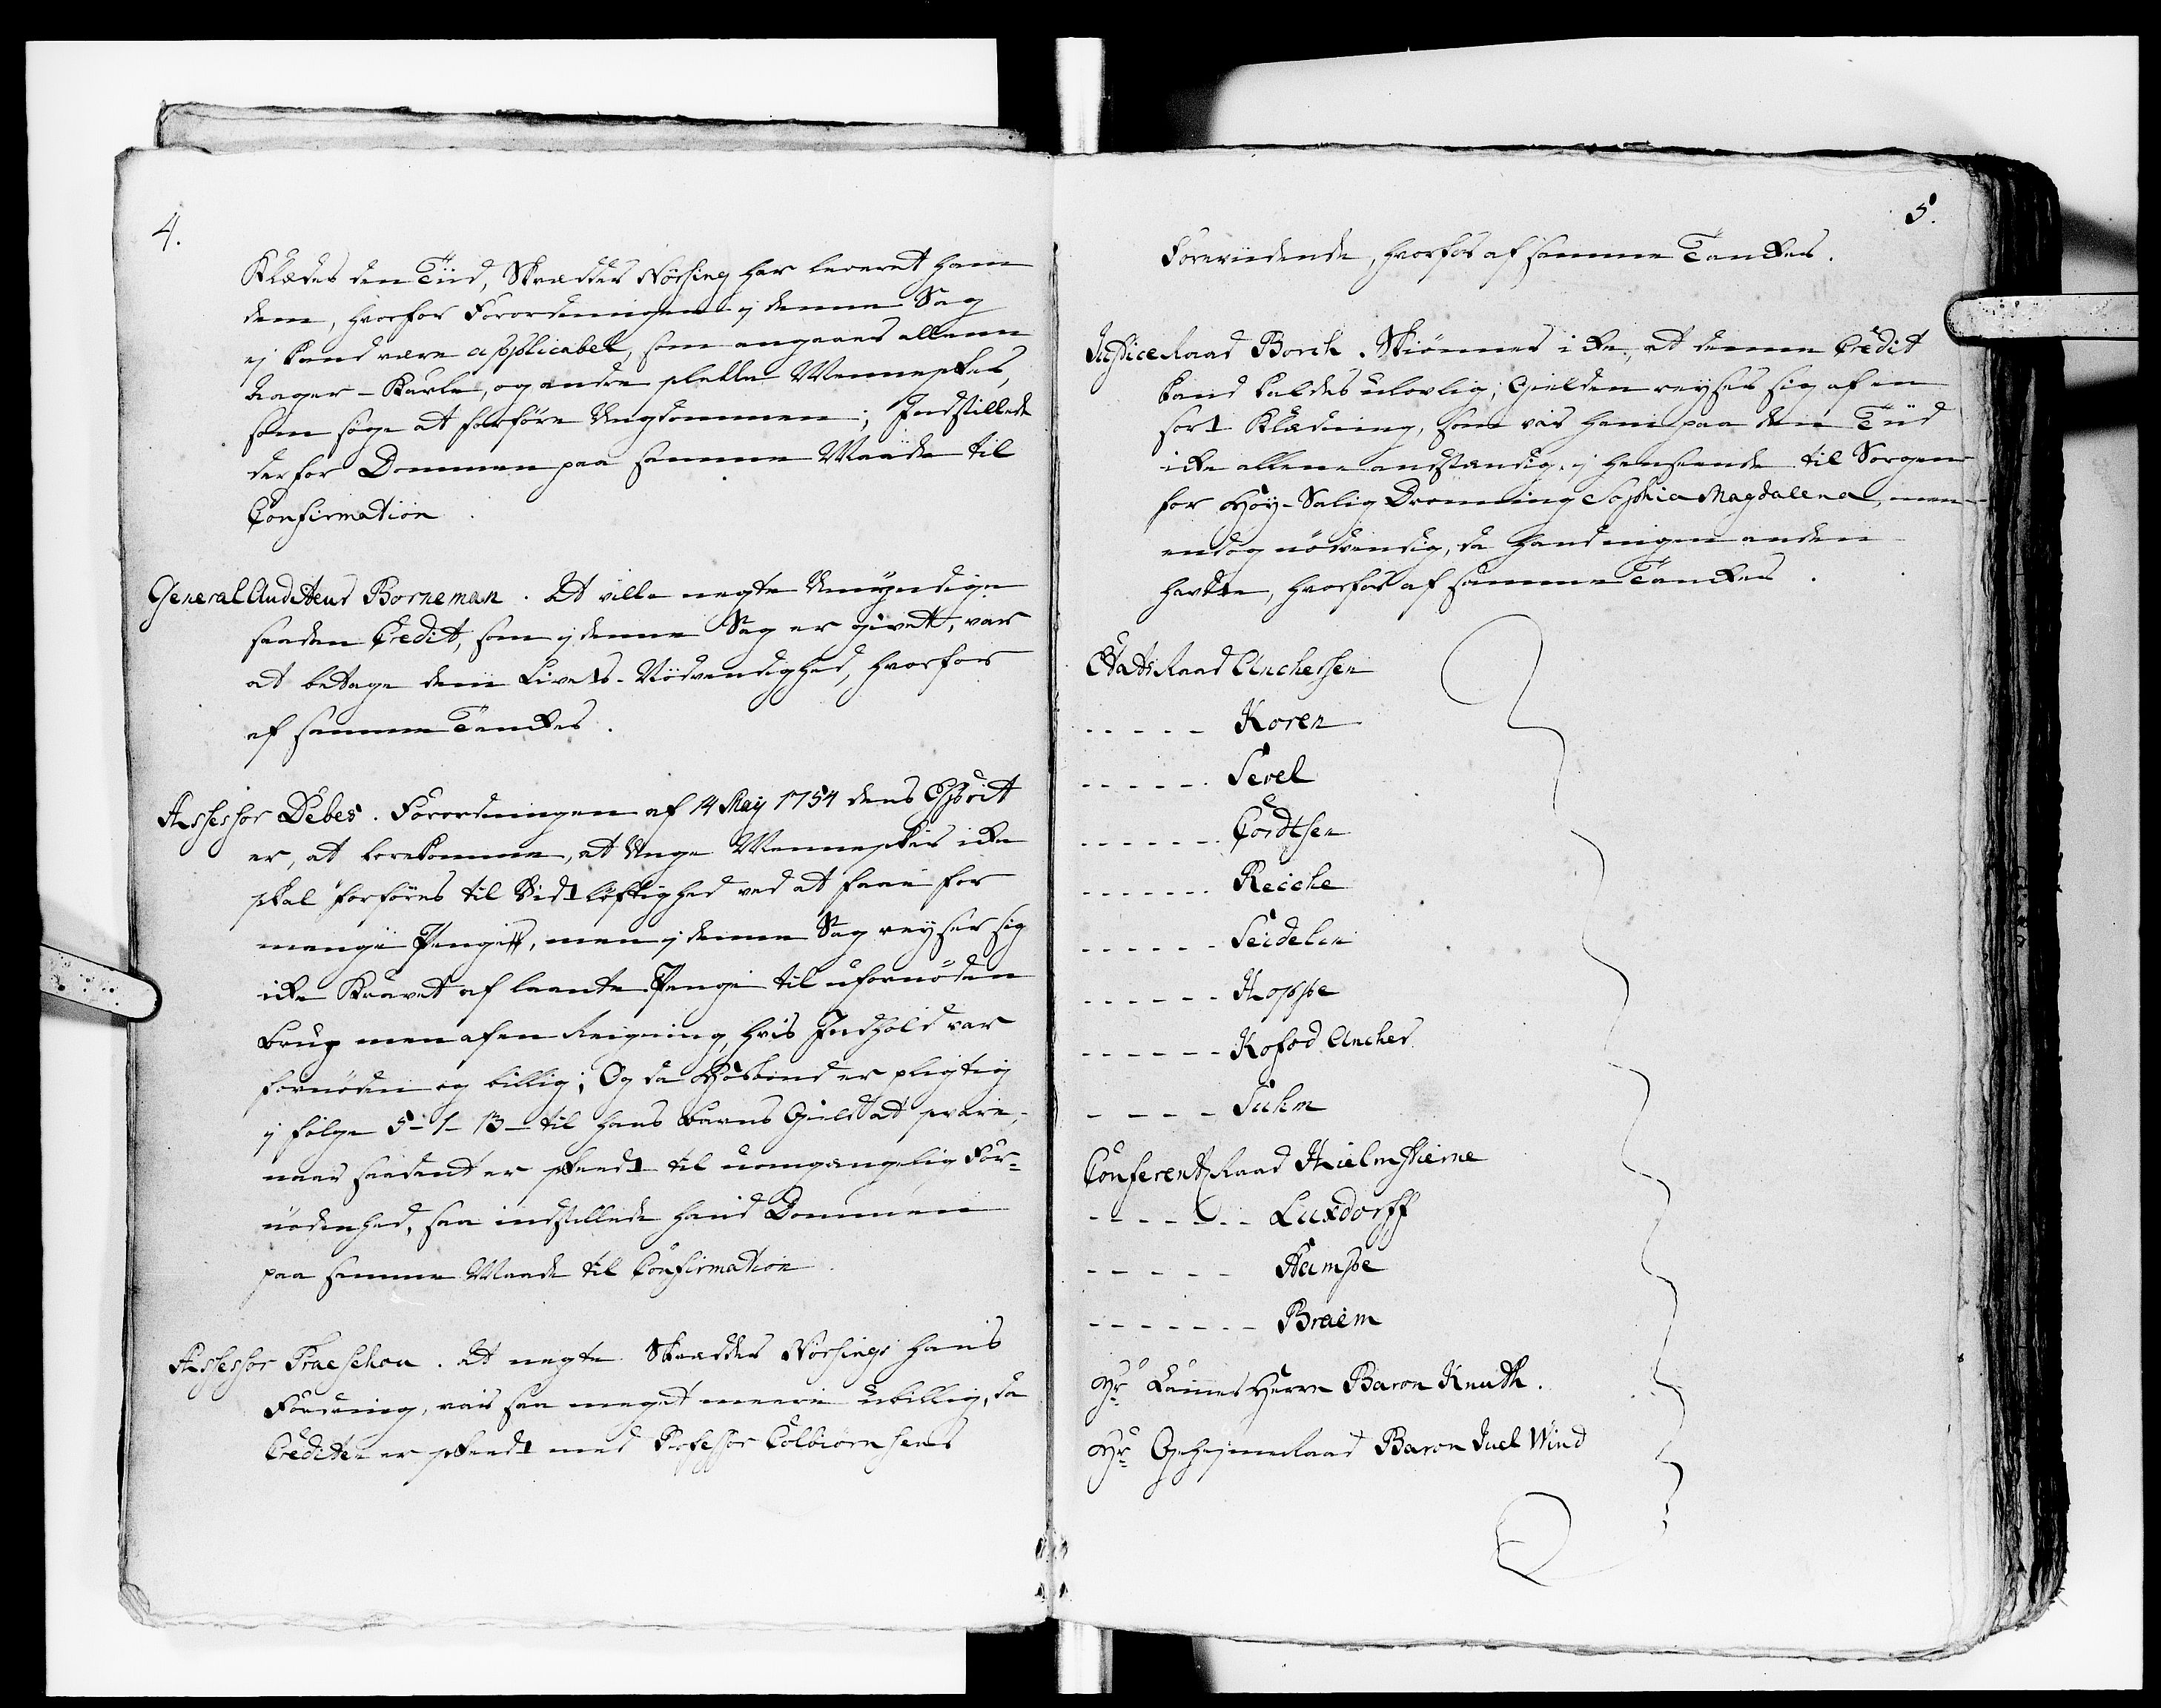 4.
Klæder den Tiid, Skræder Nørsing har leveret ham
dem, hvorfor Forordningen i denne Sag
ej kand være applicabel, som angaaer allene
Aager-Karle, og andre slette Mennesker,
som søge at forføre Ungdommen; Indstillede
derfor Dommen paa samme Maade til
Confirmation.
General Auditeur Borneman. At ville negte Umyndige
saadan Credit, som i denne Sag er givet, var
at betage dem Livets-Nødvendighed, hvorfor
af samme Tanker.
Assessor Debes. Forordningen af 14 May 1754 dens Esprit
er, at forekomme, at Unge Mennesker icke
skal forføres til Vidtløftighed ved at faae for
mange Penge, men i denne Sag reyser sig
icke Kravet af laante Penge til ufornøden
Brug men af en Reigning, hvis Indhold var
fornøden og billig; Og da Hosbond er pligtig
i følge 5-1-13- til hans Barns Gield at svare,
naar saadant er skeedt til uomgængelig For-
nødenhed, saa indstillede hand Dommen
paa samme Maade til Confirmation.
Assessor Praeschou. At negte Skræder Nørsings hans
Fordring, var saa meget meere ubillig, da
Crediten er skeedt med Professor Colbiørnsens
5.
Forevidende, hvorfor af samme Tanker.
Justice Raad Borch. Skiønner icke, at denne Credit
kand kaldes ulovlig; Gielden reyser sig af en
sort Klædning, som var ham paa den Tiid
icke allene anstændig, i henseende til Sorgen
for Høy-Salig Dronning Sophia Magdalena, men
endog nødvendig, da hand ingen anden
havde, hvorfor af samme Tanker.
Etats Raad Anchersen
- - - - - Koren
- - - - - Sevel
- - - - - - Cordtsen
- - - - - - Reiche
- - - - - - Seidelin
- - - - - - Hoppe
- - - - - - Kofod Ancher
- - - - Suhm
Conferentz Raad Hielmstierne
- - - - - - Luxdorff
- - - - - Stampe
- - - - - - - Braëm
Hr. Cammer Herre Baron Knuth.
Hr. Geheime Raad Baron Juel Wind